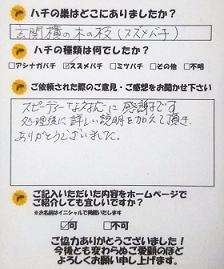 ハチの巣はどこにありましたか？
玄関横の木の枝(スズメバチ)
ハチの種類は何でしたか？
□アシナガバチ ☑スズメバチ □ミツバチ □その他 □不明
ご依頼された際のご意見・ご感想をお聞かせ下さい
スピーディーな対応に感謝です
処理後に詳しい説明を加えて頂き
ありがとうございました。
ご記入いただいた内容をホームページで
ご紹介しても宜しいですか？
※お名前はイニシャルで掲載いたします
☑可 □不可
ご協力ありがとうございました！
今後とも変わらぬご愛顧のほど
よろしくお願い申し上げます。